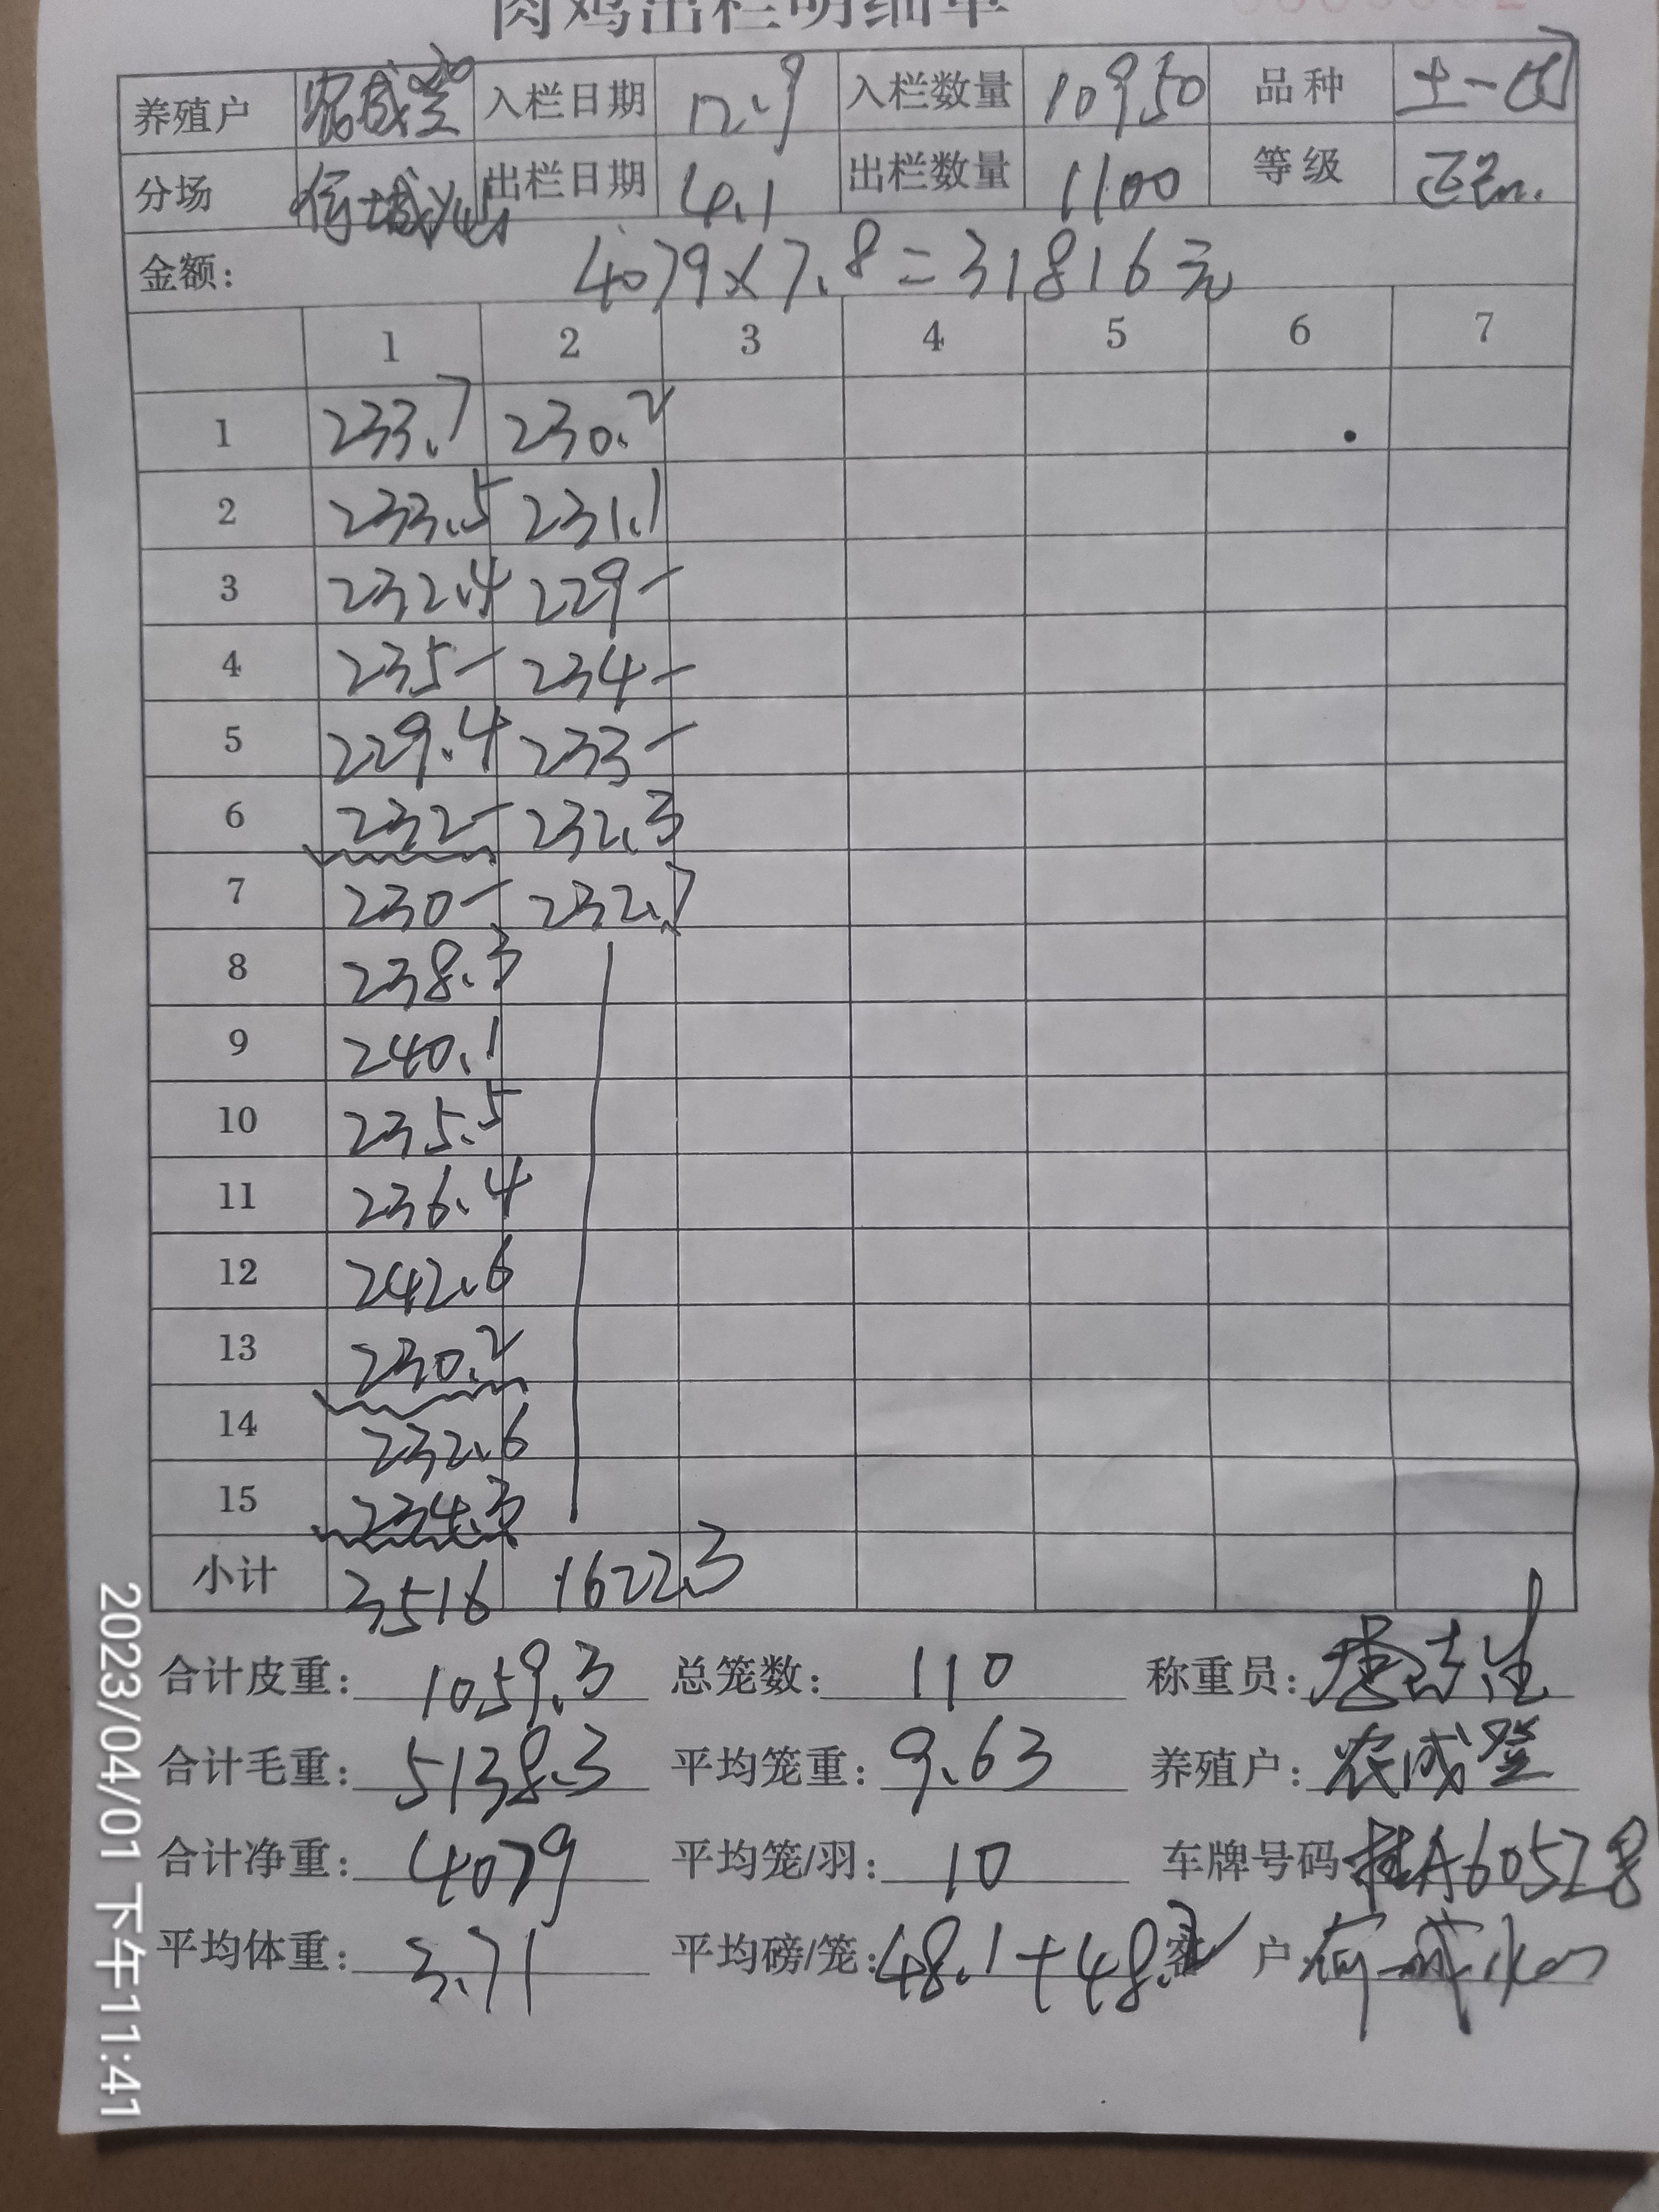 肉鸡出栏明细单
养殖户 农成登 入栏日期 12.9 入栏数量 10950 品种 土一
分场 出栏日期 4.1 出栏数量 1100 等级 正
金额: 4079×7.8=31816元
1 2 3 4 5 6 7
1 233.7 230.2
2 233.5 231.1
3 232.4 229-
4 235- 234-
5 229.4 233-
6 232- 232.3
7 230- 232.7
8 238.3
9 240.1
10 235.5
11 236.4
12 242.6
13 230.2
14 232.6
15 234.3
小计 3516 1622.3
合计皮重: 1059.3 总笼数: 110 称重员:
合计毛重: 5138.3 平均笼重: 9.63 养殖户: 农成登
合计净重: 4079 平均笼/羽: 10 车牌号码 桂A60528
平均体重: 3.71 平均磅/笼: 48.1+48.2 客户
2023/04/01 下午11:41